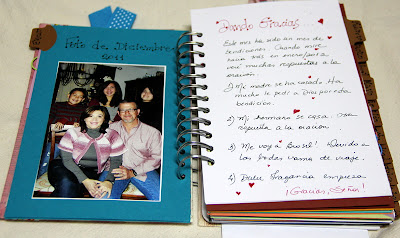 Foto de Diciembre
2011
Dando Gracias...
Este mes ha sido un mes de
bendiciones. Cuando miro
hacia atrás en enero/
veo muchas respuestas a la
oración.
1) Mi madre se ha casado. Ha
mucho le pedí a Dios por esta
bendición.
2) Mi hermano se casa. Otra
respuesta a la oración.
3) Me voy a Brasil! Debido a
las bodas vamos de viaje.
4) Dulce Fragancia empieza
¡Gracias, Señor!